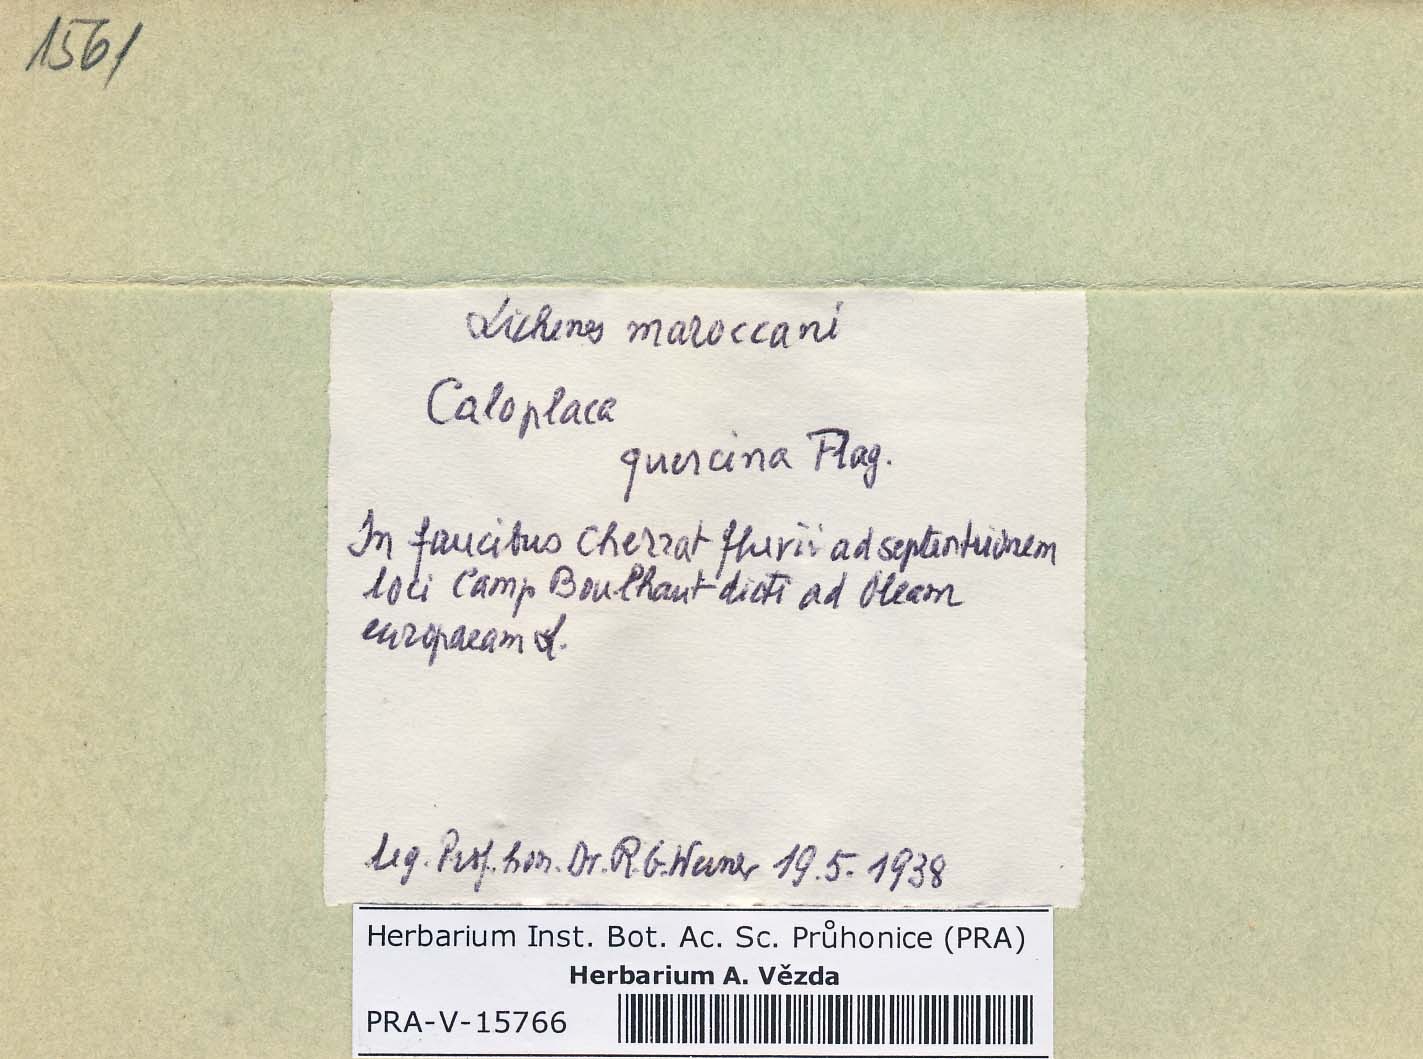 1561
Lichenes maroccani
Caloplaca
quercina Flag.
In faucibus Cherrat fluvii ad septentrionem
loci Camp Boulhaut dicti ad Oleam
europaeam L.
leg. Prof. hon. Dr. R. G. Werner 19.5.1938
Herbarium Inst. Bot. Ac. Sc. Průhonice (PRA)
Herbarium A. Vězda
PRA-V-15766